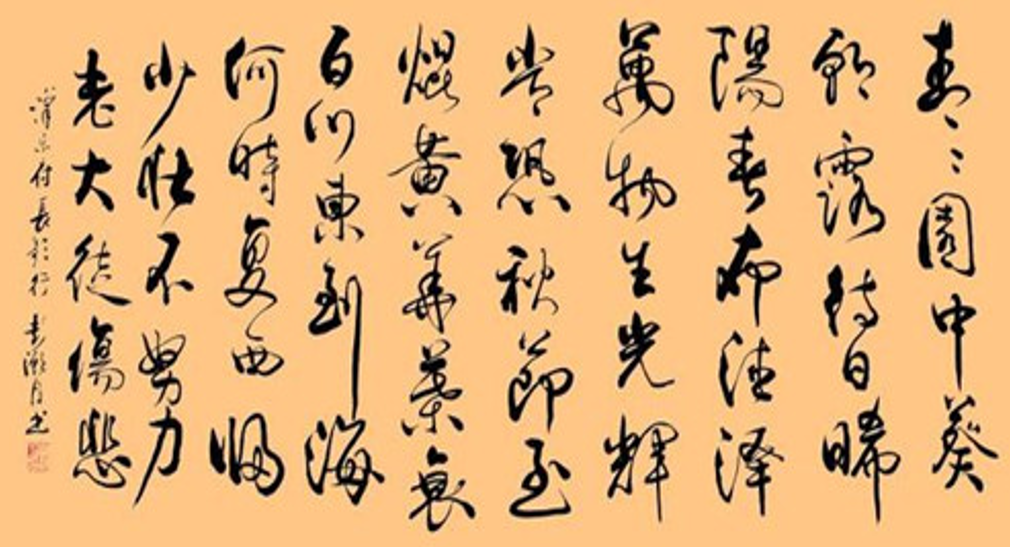 青〻園中葵
朝露待日晞
陽春布德澤
萬物生光輝
常恐秋節至
焜黃華葉衰
百川東到海
何時复西歸
少壯不努力
老大徒傷悲
長歌行